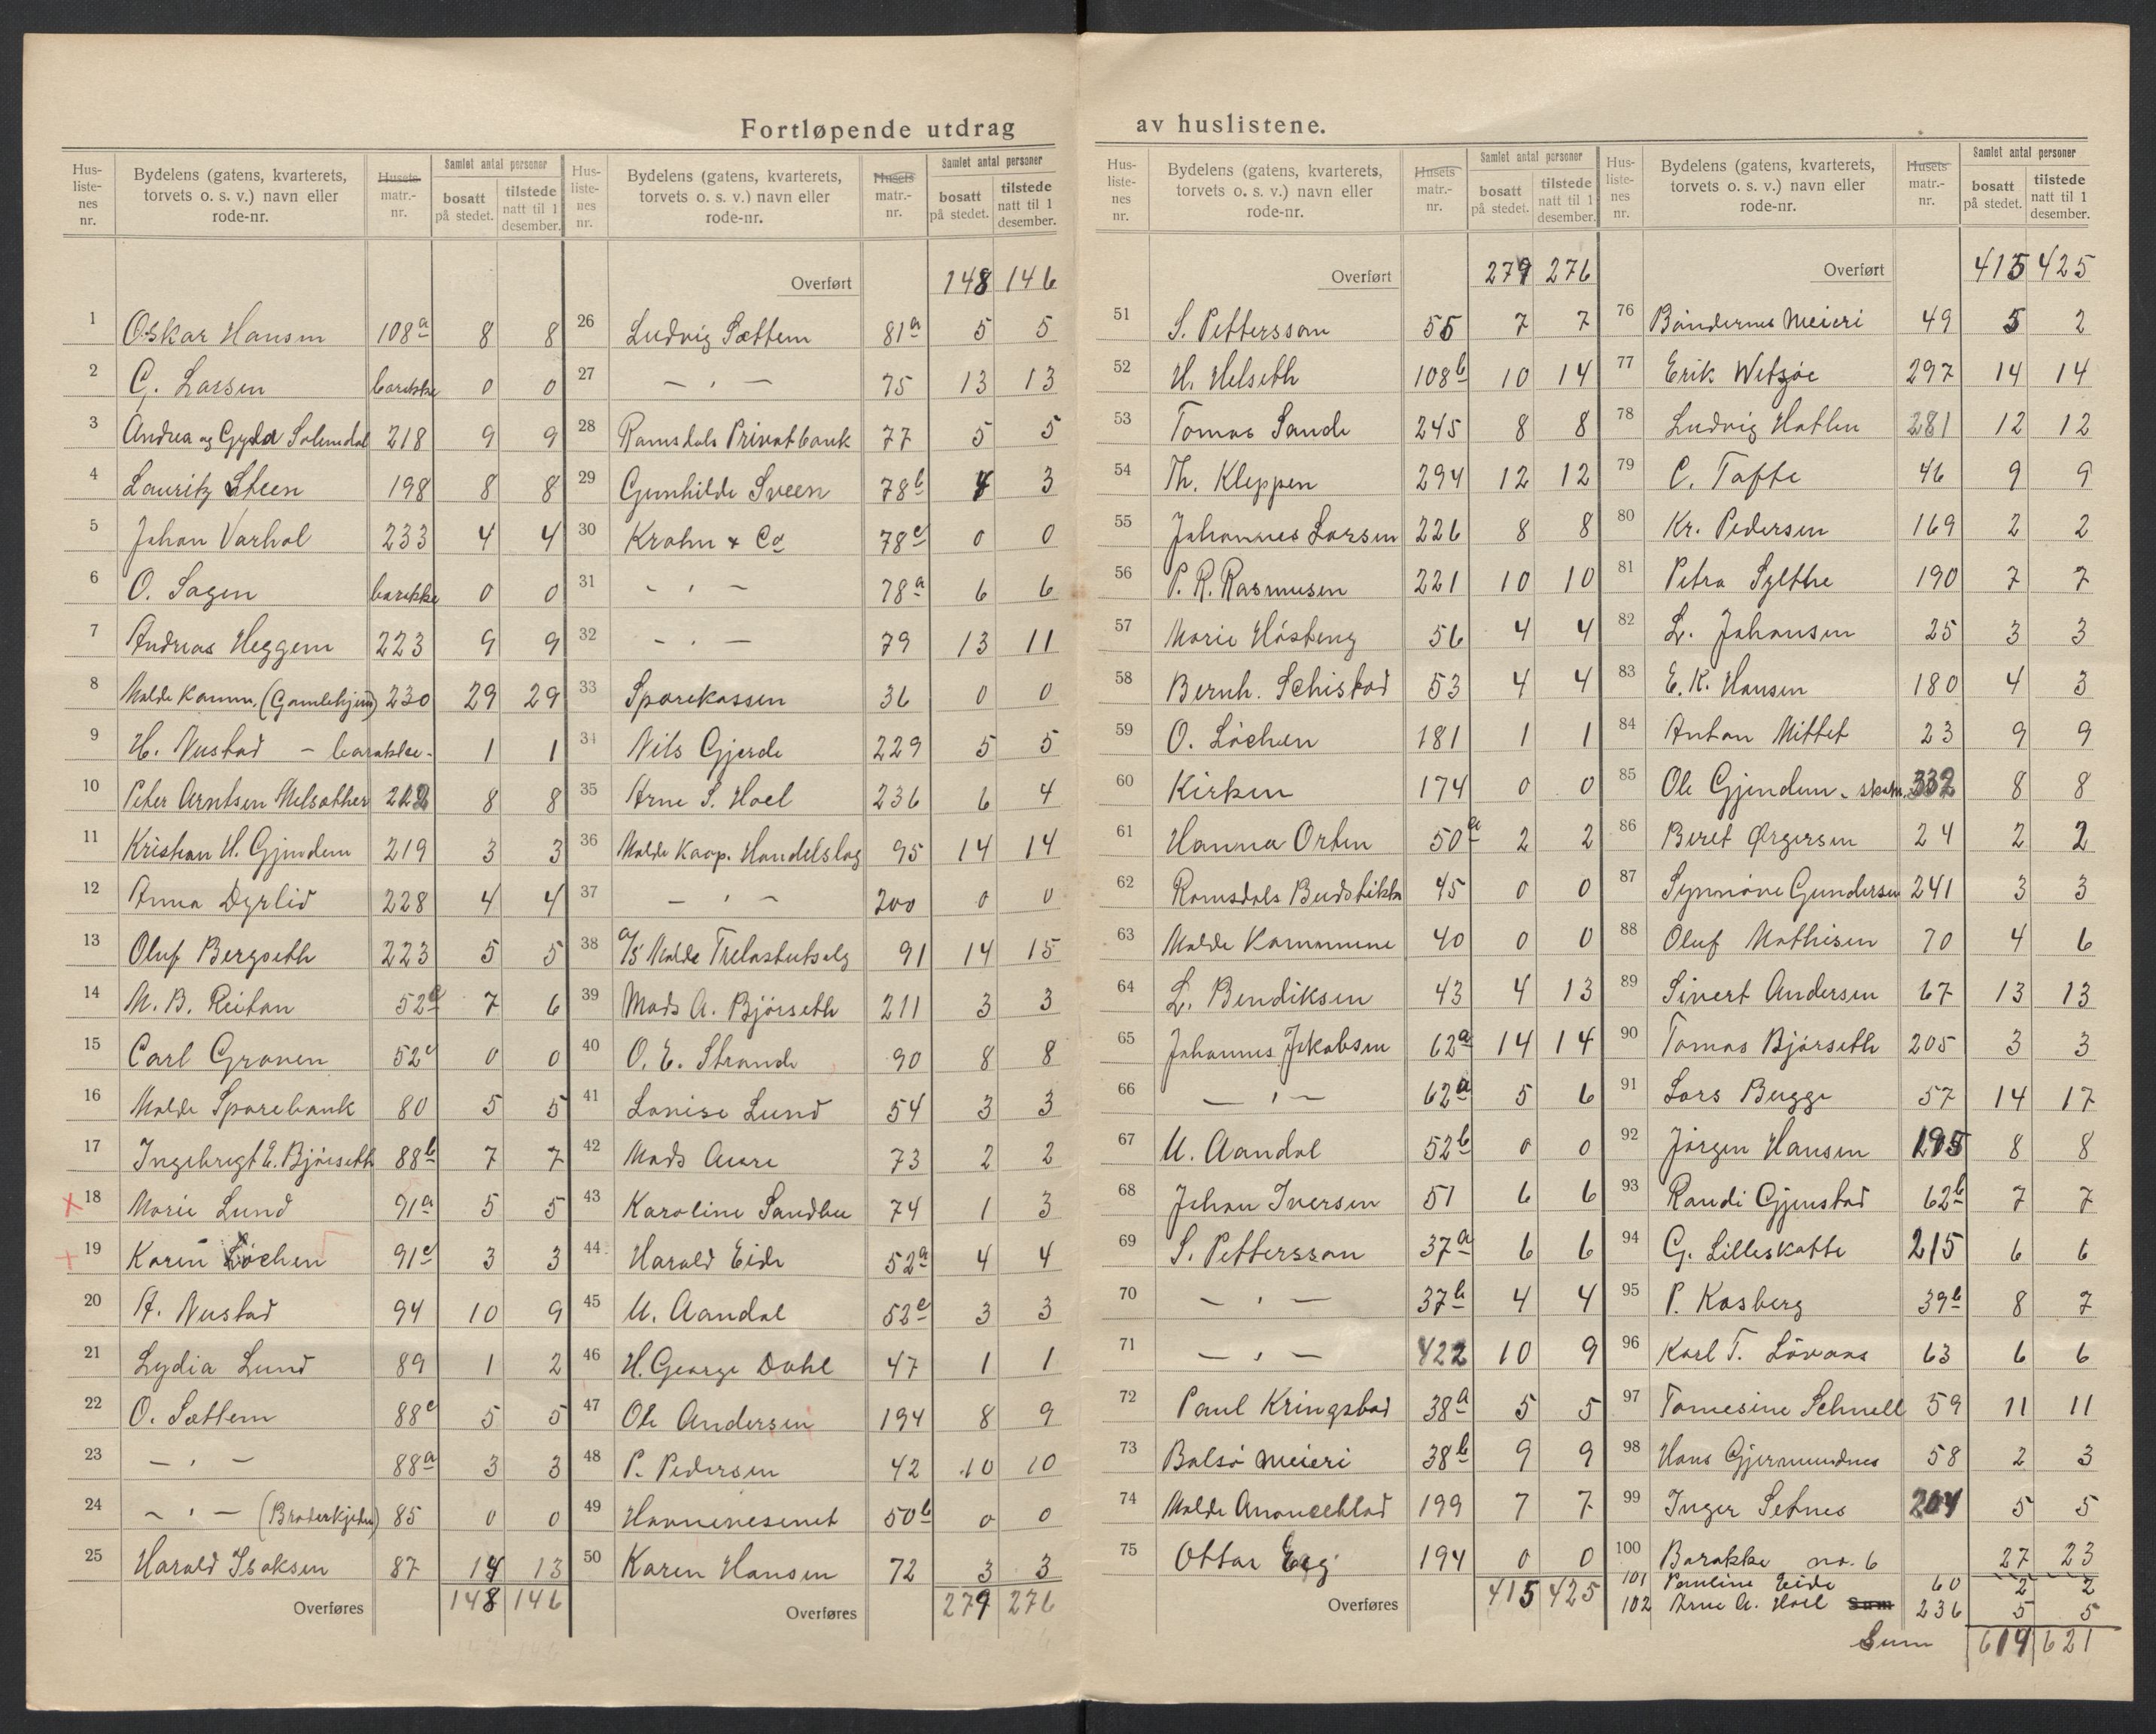 Fortløpende utdrag av huslistene.
Hus-listenes nr. | Bydelens (gatens, kvarterets, torvets o. s. v.) navn eller rode-nr. | Husets matr.-nr. | Samlet antal personer bosatt på stedet. | tilstede natt til 1 desember.
1 Oskar Hansen 108a 8 8
2 G. Larsen barakke 0 0
3 Andrea og Gyda Solemdal 218 9 9
4 Lauritz Steen 198 8 8
5 Johan Varhol 233 4 4
6 O. Sagen barakke 0 0
7 Andreas Heggem 223 9 9
8 Molde Komm. (Gamlehjem) 230 29 29
9 H. Nustad - barakke - 1 1
10 Peter Arntsen Melsæther 212 8 8
11 Kristian H. Gjendem 219 3 3
12 Anna Dyrlid 228 4 4
13 Oluf Bergseth 223 5 5
14 M. B. Reitan 52d 7 6
15 Carl Groven 52c 0 0
16 Molde Sparebank 80 5 5
17 Ingebrigt E. Bjørseth 88b 7 7
x 18 Marie Lund 91a 5 5
+ 19 Karen Løchen 91c 3 3
20 A. Nustad 94 10 9
21 Lydia Lund 89 1 2
22 O. Sættem 88c 5 5
23 - " - 88a 3 3
24 - " - (Braderkjelen) 85 0 0
25 Harald Isaksen 87 14 13
Overføres 148 146
Hus-listenes nr. | Bydelens (gatens, kvarterets, torvets o. s. v.) navn eller rode-nr. | Husets matr.-nr. | Samlet antal personer bosatt på stedet. | tilstede natt til 1 desember.
Overført 148 146
26 Ludvig Sættem 81a 5 5
27 - " - 75 13 13
28 Romsdals Privatbank 77 5 5
29 Gunhilde Sveen 78b 4 3
30 Krohn & Co 78c 0 0
31 - " - 78a 6 6
32 - " - 79 13 11
33 Sparekassen 36 0 0
34 Nils Gjerde 229 5 5
35 Arne S. Hoel 236 6 4
36 Molde Koop. Handelslag 95 14 14
37 - " - 200 0 0
38 A/S Molde Trelastutsalg 91 14 15
39 Mads A. Bjørseth 211 3 3
40 O. E. Strande 90 8 8
41 Lovise Lund 54 3 3
42 Mads Aure 73 2 2
43 Karoline Sandbu 74 1 3
44 Harald Eide 52a 4 4
45 U. Aandal 52e 3 3
46 H. George Dahl 47 1 1
47 Ole Andersen 194 8 9
48 P. Pedersen 42 10 10
49 Havnevesenet 50b 0 0
50 Karen Hansen 72 3 3
Overføres 279 276
Hus-liste-nes nr. | Bydelens (gatens, kvarterets, torvets o. s. v.) navn eller rode-nr. | Husets matr.-nr. | Samlet antal personer bosatt på stedet. | tilstede natt til 1 desember.
Overført 279 276
51 S. Pettersson 55 7 7
52 H. Helseth 108b 10 14
53 Tomas Sande 245 8 8
54 Th. Kleppen 294 12 12
55 Johannes Larsen 226 8 8
56 P. R. Rasmusen 221 10 10
57 Marie Høsteng 56 4 4
58 Bernh. Schistad 53 4 4
59 O. Löchen 181 1 1
60 Kirken 174 0 0
61 Hanna Orten 50a 2 2
62 Romsdals Budstikke 45 0 0
63 Molde Kommune 40 0 0
64 L. Bendiksen 43 4 13
65 Johannes Jakobsen 62a 14 14
66 - " - 62a 5 6
67 U. Aandal 52b 0 0
68 Johan Iversen 51 6 6
69 S. Pettersson 37a 6 6
70 - " - 37b 4 4
71 - " - 422 10 9
72 Paul Kringstad 38a 5 5
73 Bolsø Meieri 38b 9 9
74 Molde Anonseblad 199 7 7
75 Ottar Eeg 194 0 0
Overføres 415 425
Hus-liste-nes nr. | Bydelens (gatens, kvarterets, torvets o. s. v.) navn eller rode-nr. | Husets matr.-nr. | Samlet antal personer bosatt på stedet. | tilstede natt til 1 desember.
Overført 415 425
76 Bøndernes Meieri 49 5 2
77 Erik Wetzøe 297 14 14
78 Ludvig Hatlen 281 12 12
79 C. Tafte 46 9 9
80 Kr. Pedersen 169 2 2
81 Petra Sylthe 190 7 7
82 L. Johansen 25 3 3
83 E. K. Hansen 180 4 3
84 Anton Mittet 23 9 9
85 Ole Gjendem 332 8 8
86 Beret Ørgersen 24 2 2
87 Synnøve Gundersen 241 3 3
88 Oluf Mathisen 70 4 6
89 Sivert Andersen 67 13 13
90 Tomas Bjørseth 205 3 3
91 Lars Bugge 57 14 17
92 Jørgen Hansen 195 8 8
93 Randi Gjenstad 62b 7 7
94 G. Lilleskatte 215 6 6
95 P. Kosberg 39b 8 7
96 Karl T. Lövaas 63 6 6
97 Tomesine Schnell 59 11 11
98 Hans Gjermundnes 58 2 3
99 Inger Setnes 204 5 5
100 Barakke no. 6 27 23
101 Pauline Eide 60 2 2
102 Arne A. Hoel Sum 236 5 5
Sum 619 621